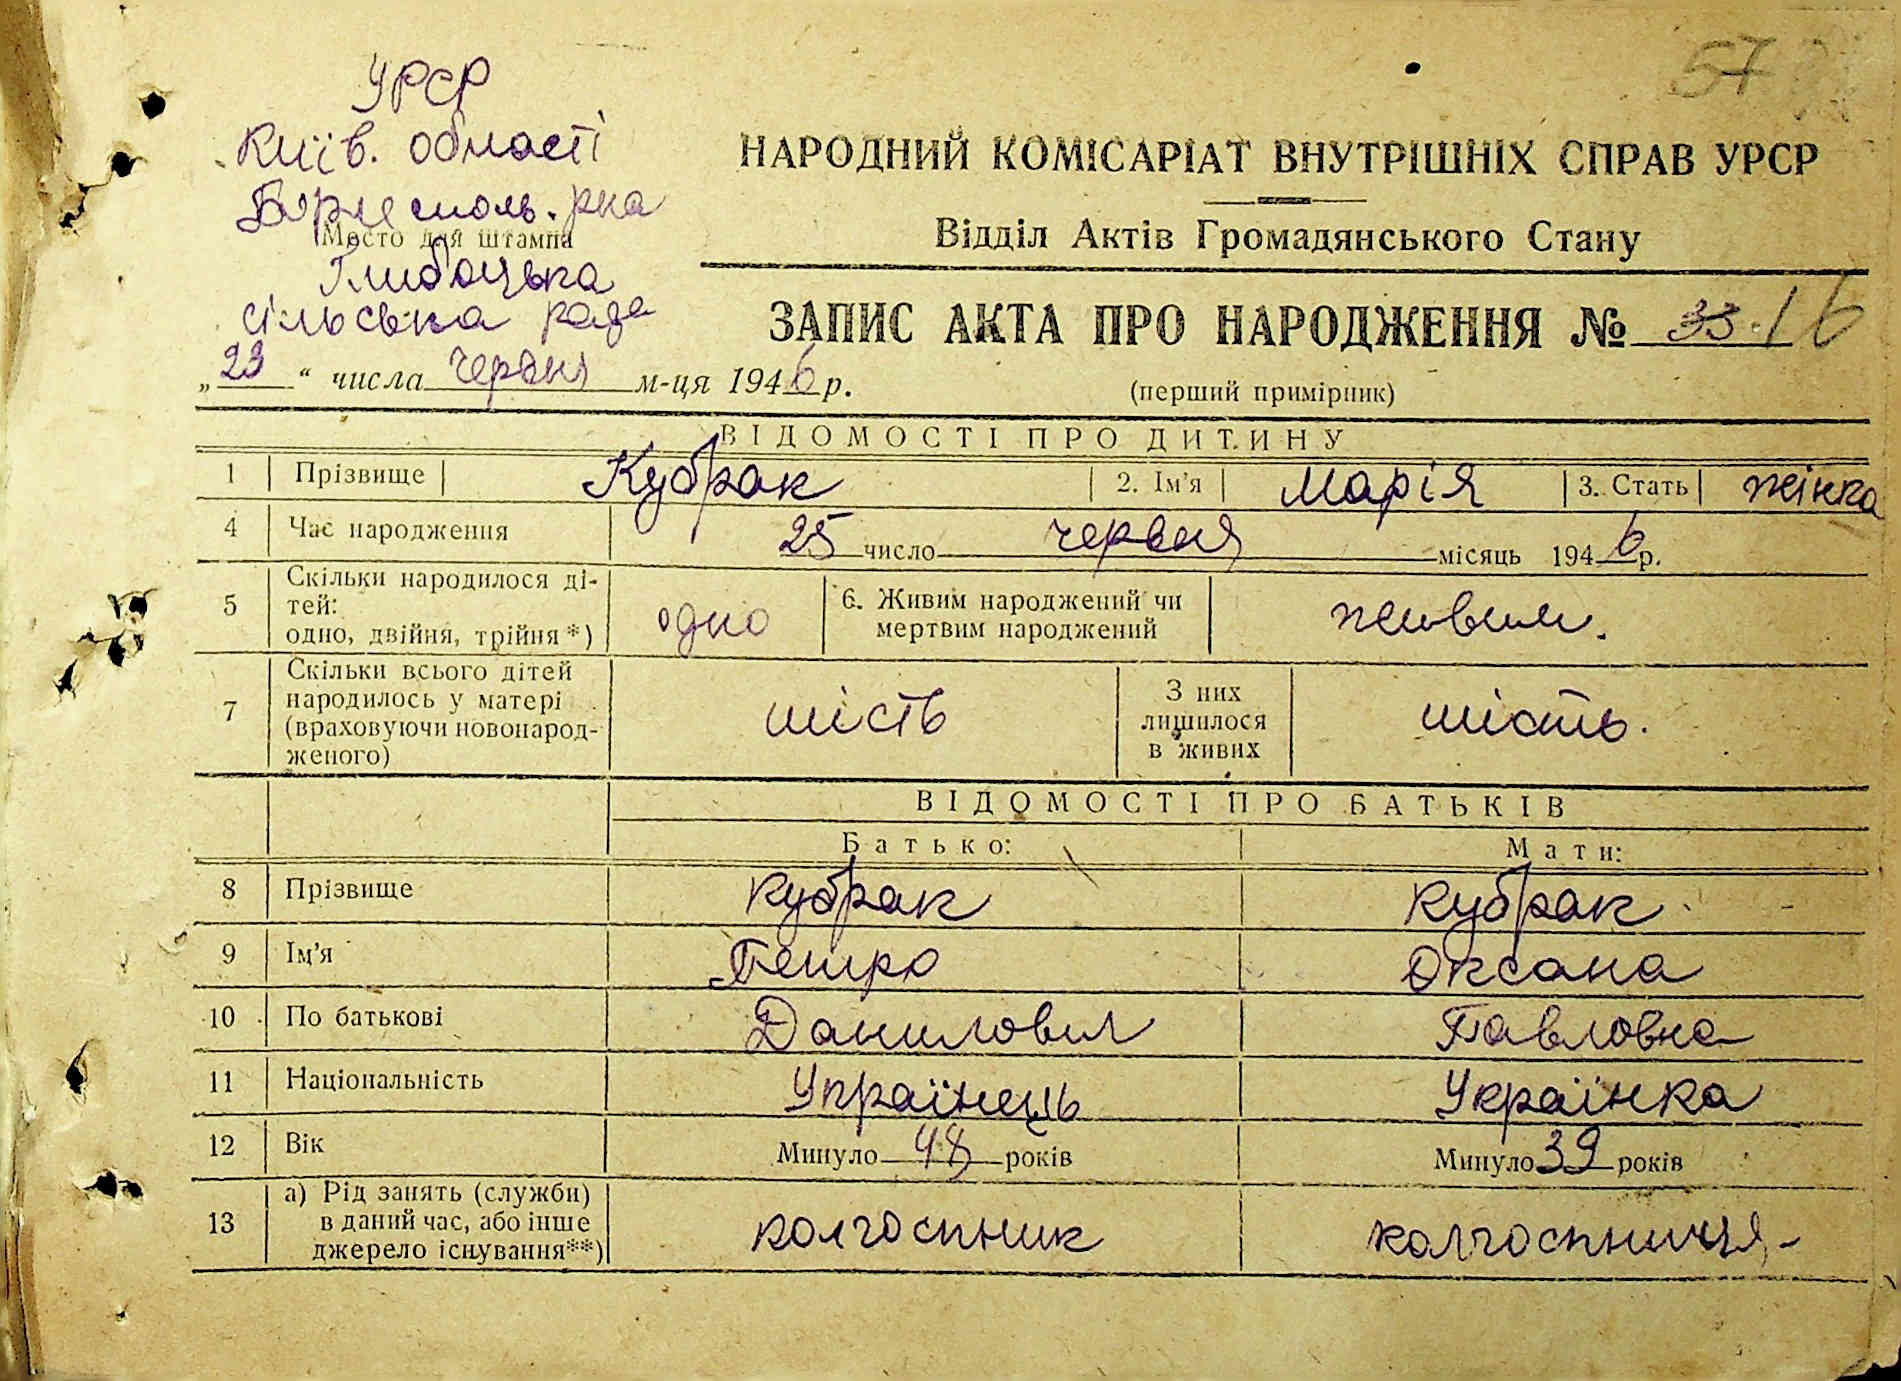 57
УРСР
Київ. області
Бориспол. р-на
Место для штампа
Глибоцька
сільська рада
НАРОДНИЙ КОМІСАРІАТ ВНУТРІШНІХ СПРАВ УРСР
Відділ Актів Громадянського Стану
ЗАПИС АКТА ПРО НАРОДЖЕННЯ № 33. 16
„23“ числа червня м-ця 1946 р.
(перший примірник)
ВІДОМОСТІ ПРО ДИТИНУ
1 Прізвище Кубрак 2. Ім'я Марія 3. Стать жінка
4 Час народження 25 число червня місяць 1946 р.
5 Скільки народилося ді-
тей:
одно, двійня, трійня*) одно 6. Живим народжений чи
мертвим народжений живим.
7 Скільки всього дітей
народилось у матері
(враховуючи новонарод-
женого) шість З них
лишилося
в живих шість.
ВІДОМОСТІ ПРО БАТЬКІВ
Батько: Мати:
8 Прізвище Кубрак Кубрак
9 Ім'я Петро Оксана
10 По батькові Данилович Павловна
11 Національність Українець Українка
12 Вік Минуло 48 років Минуло 39 років
13 а) Рід занять (служби)
в даний час, або інше
джерело існування**) колгоспник колгоспниця